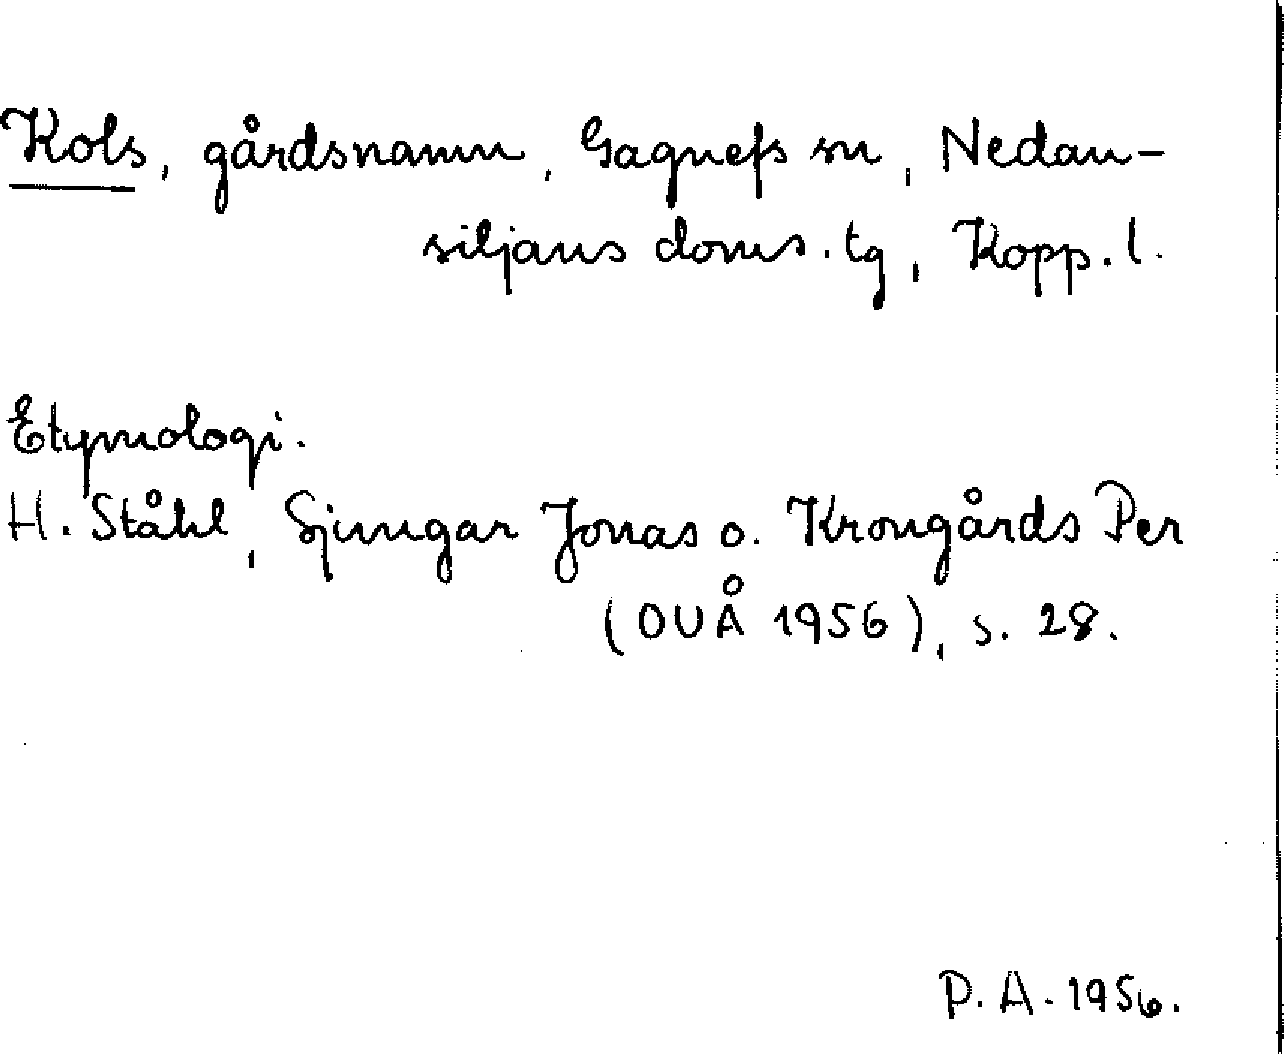 Kols, gårdsnamn, Gagnefs sn, Nedan-
siljans doms. tg, Kopp. l.
Etymologi.
H. Ståhl, Sjungar Jonas o. Krongårds Per
(OUÅ 1956), s. 28.
P. A. 1956.